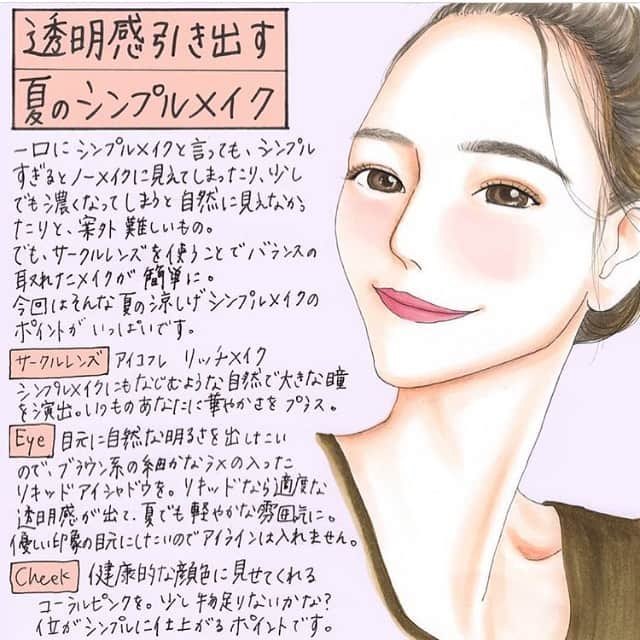 透明感引き出す
夏のシンプルメイク
一口にシンプルメイクと言っても、シンプル
すぎるとノーメイクに見えてしまったり、少し
でも濃くなってしまうと自然に見えなかっ
たりと、案外難しいもの。
でも、サークルレンズを使うことでバランスの
取れたメイクが簡単に。
今回はそんな夏の涼しげシンプルメイクの
ポイントがいっぱいです。
サークルレンズ アイコフレ リッチメイク
シンプルメイクにもなじむような自然で大きな瞳
を演出。いつものあなたに華やかさをプラス。
Eye 目元に自然な明るさを出したい
ので、ブラウン系の細かなラメの入った
リキッドアイシャドウを。リキッドなら適度な
透明感が出て、夏でも軽やかな雰囲気に。
優しい印象の目元にしたいのでアイラインは入れません。
Cheek 健康的な顔色に見せてくれる
コーラルピンクを。少し物足りないかな?
位がシンプルに仕上がるポイントです。